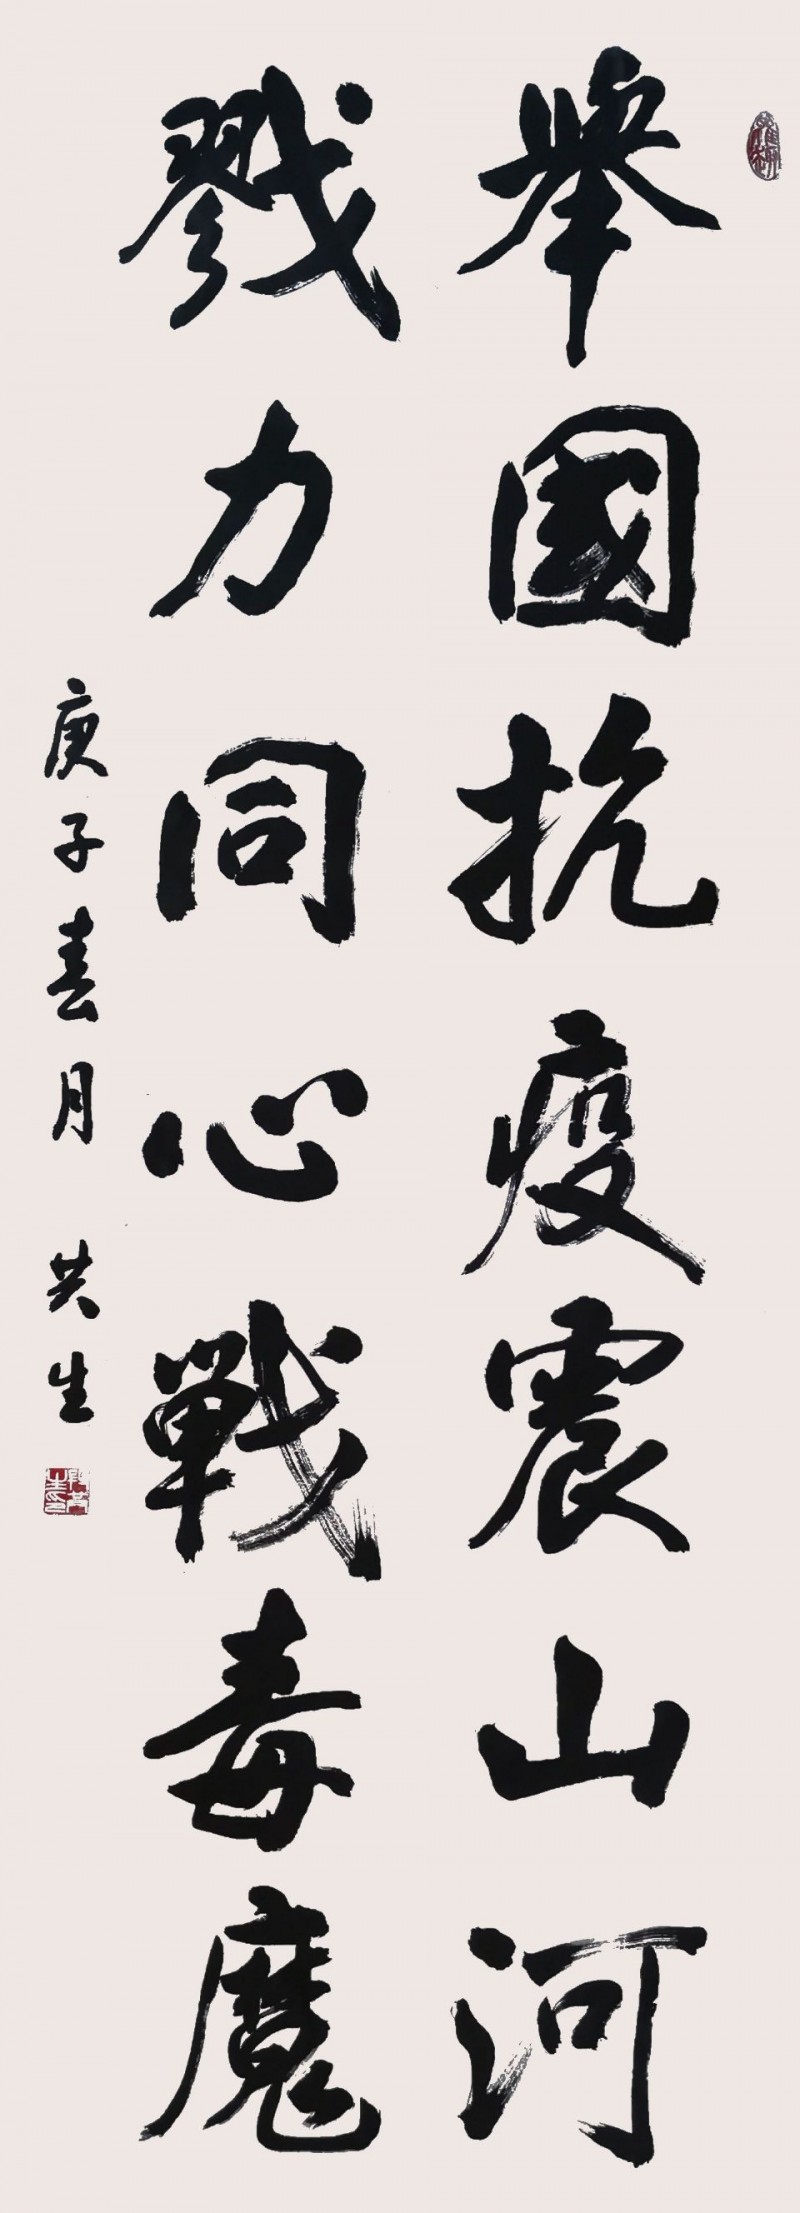 舉國抗疫震山河
戮力同心戰毒魔
庚子春月 共生